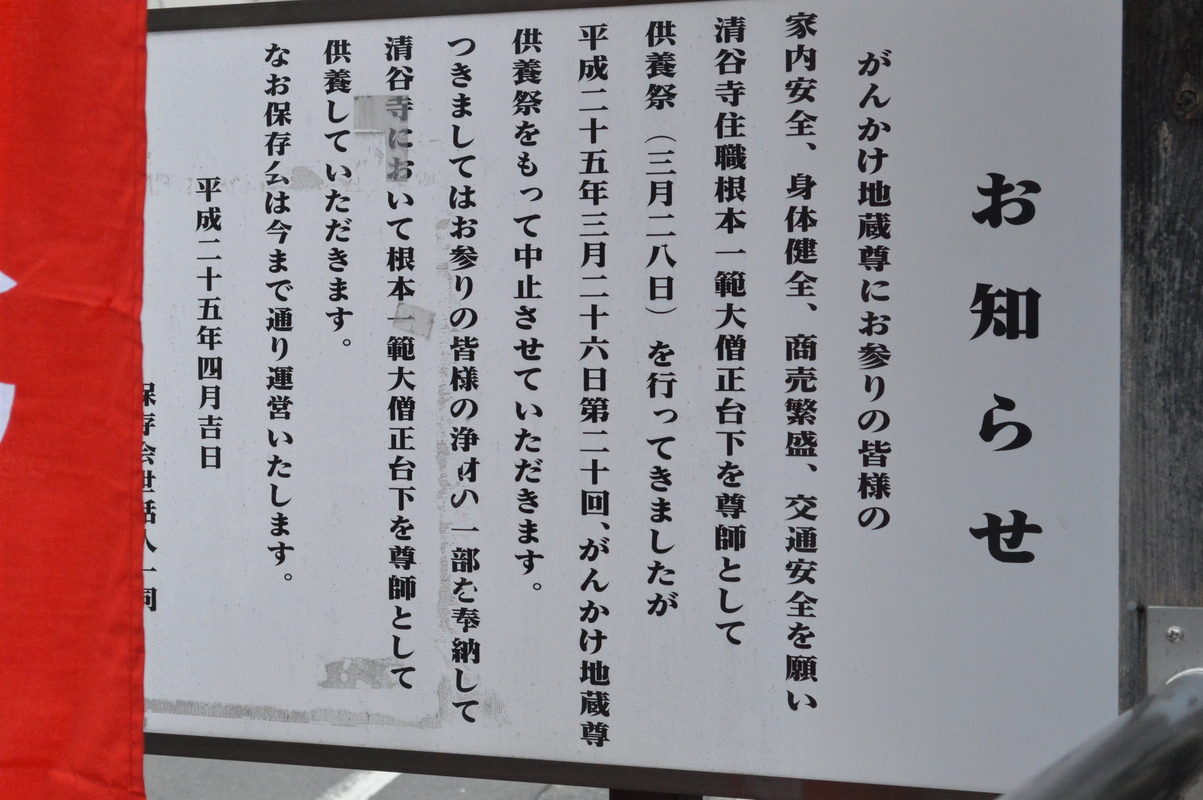 お知らせ
がんかけ地蔵尊にお参りの皆様の
家内安全、身体健全、商売繁盛、交通安全を願い
清谷寺住職根本一範大僧正台下を尊師として
供養祭（三月二八日）を行ってきましたが
平成二十五年三月二十六日第二十回、がんかけ地蔵尊
供養祭をもって中止させていただきます。
つきましてはお参りの皆様の浄財の一部を奉納して
清谷寺において根本一範大僧正台下を尊師として
供養していただきます。
なお保存会は今まで通り運営いたします。
平成二十五年四月吉日
保存会世話人一同